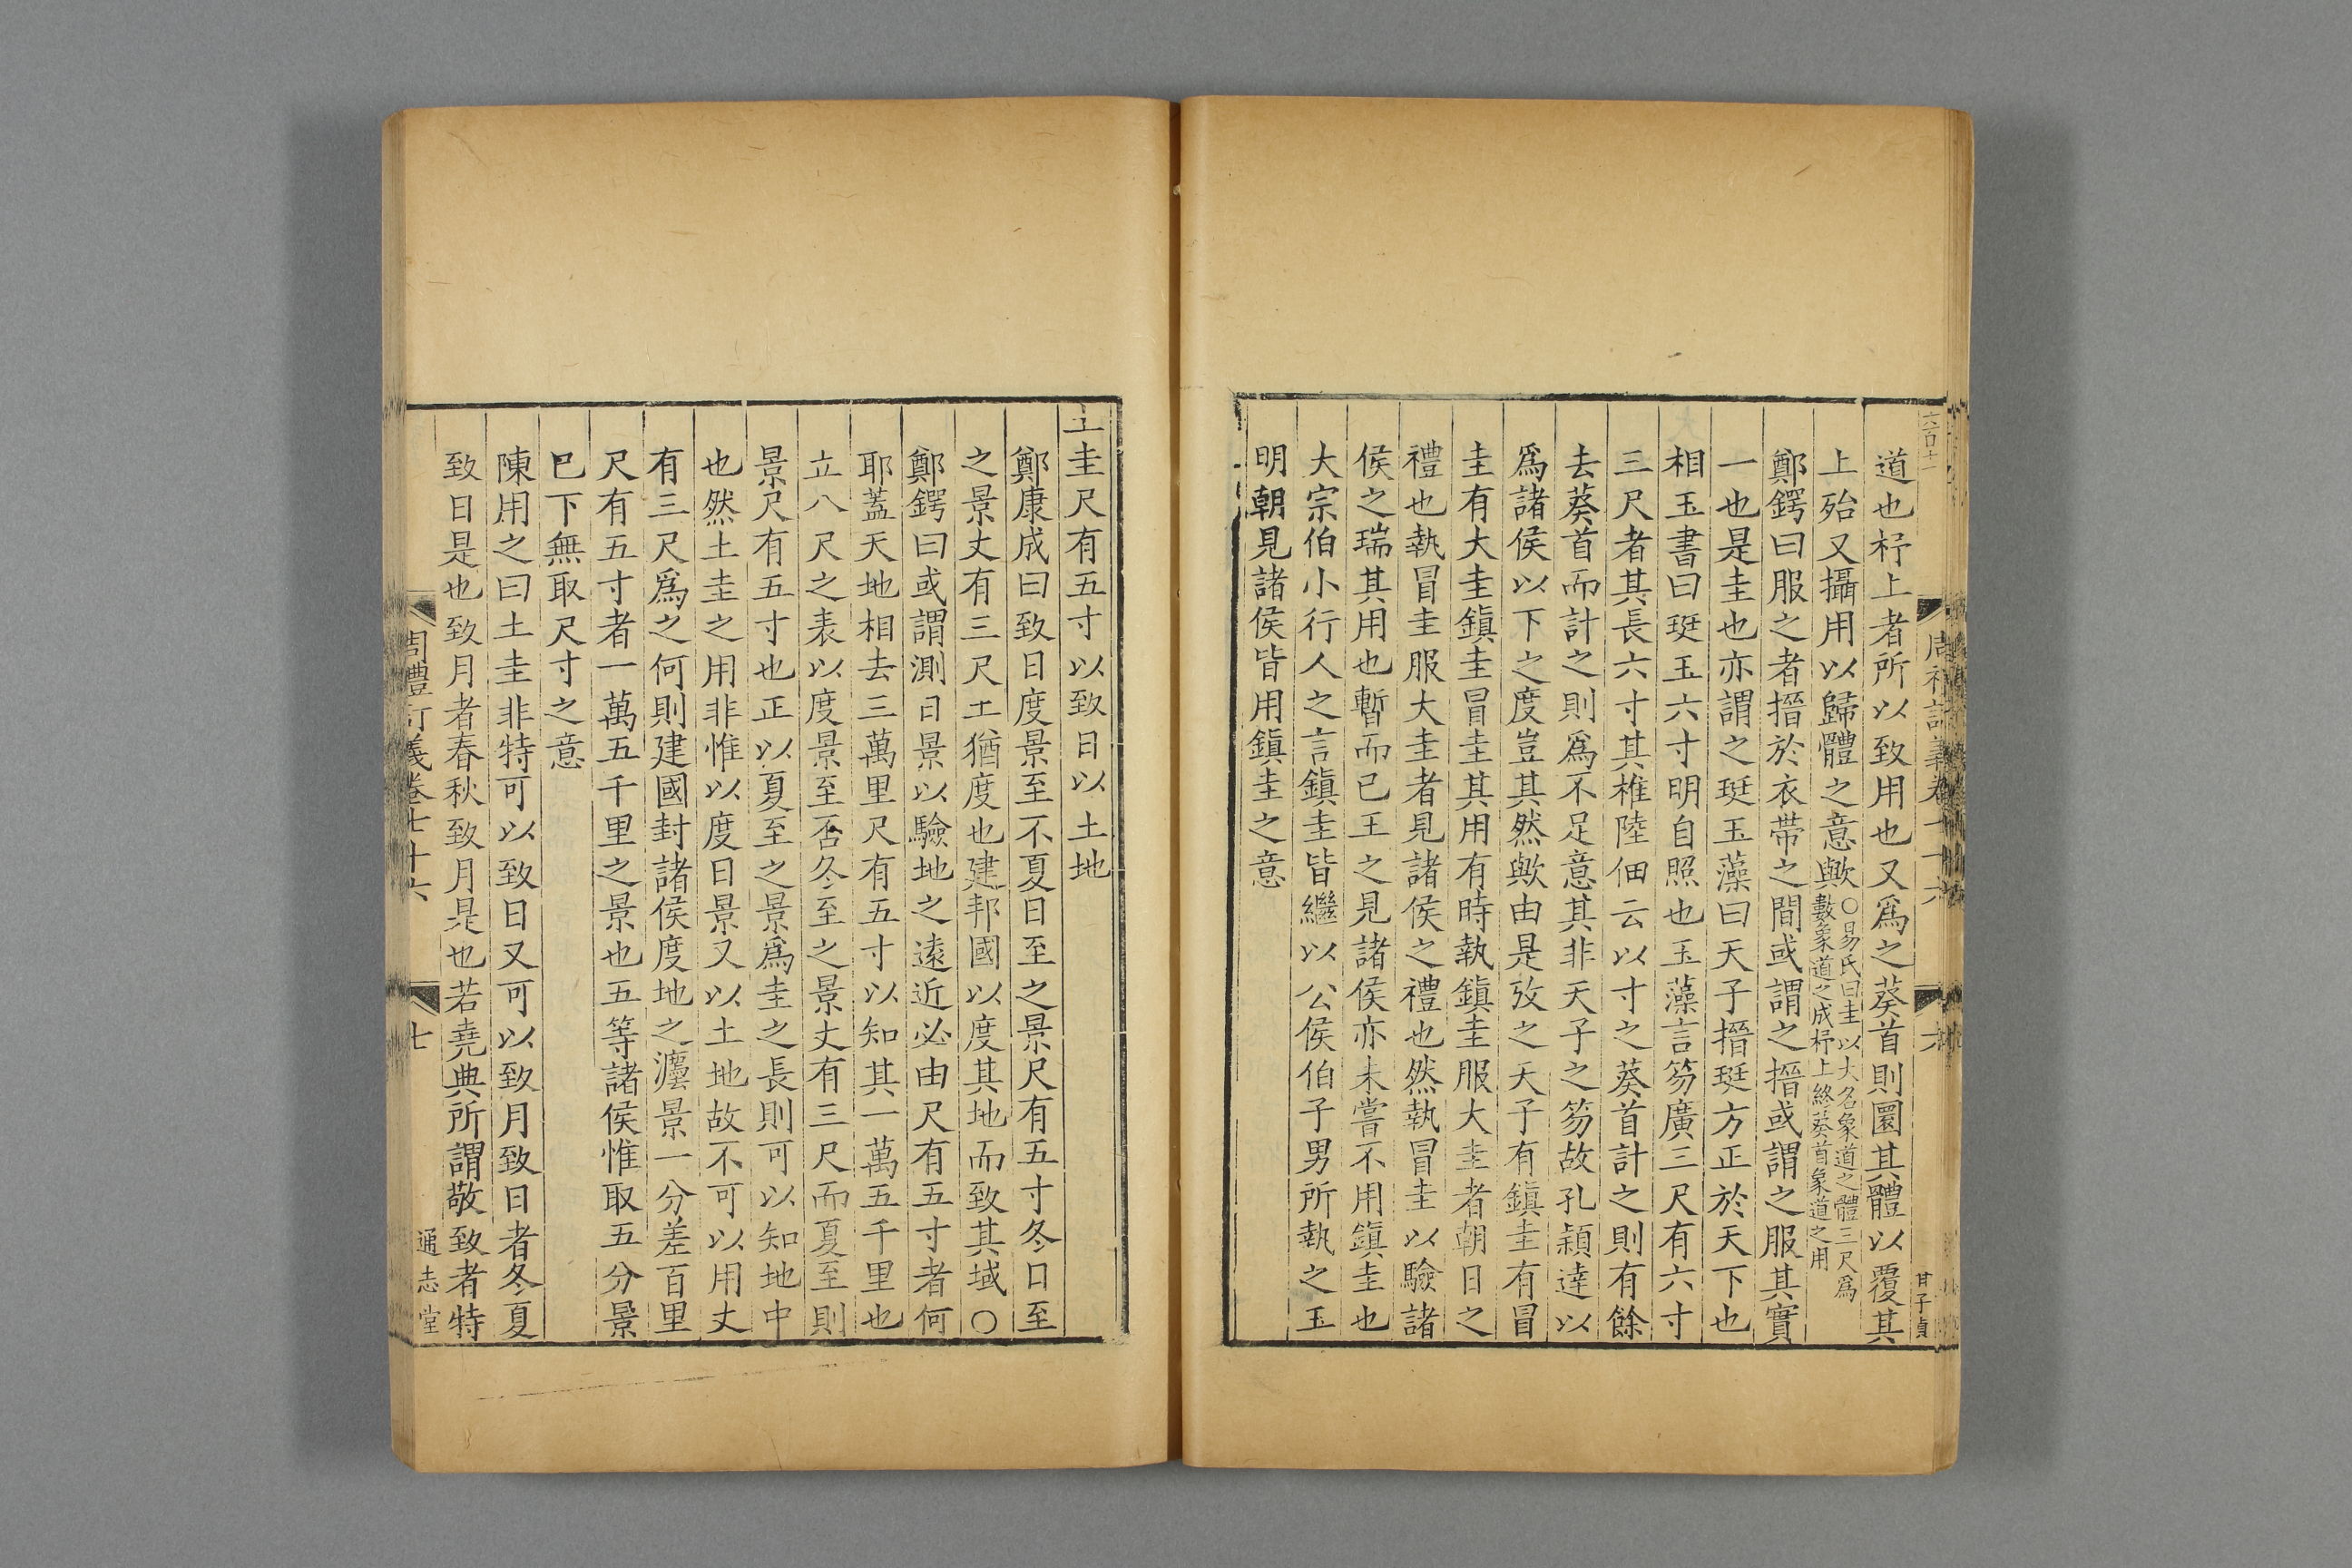 道也杼上者所以致用也又爲之葵首則圜其體以覆其
上殆又攝用以歸體之意歟○易氏曰圭以大名象道之體三尺爲
數象道之成杼上終葵首象道之用
鄭鍔曰服之者搢於衣帶之間或謂之搢或謂之服其實
一也是圭也亦謂之珽玉藻曰天子搢珽方正於天下也
相玉書曰珽玉六寸明自照也玉藻言笏廣三尺有六寸
三尺者其長六寸其椎陸佃云以寸之葵首計之則有餘
去葵首而計之則爲不足意其非天子之笏故孔穎達以
爲諸侯以下之度豈其然歟由是攷之天子有鎭圭有冒
圭有大圭鎭圭冒圭其用有時執鎭圭服大圭者朝日之
禮也執冒圭服大圭者見諸侯之禮也然執冒圭以驗諸
侯之瑞其用也暫而已王之見諸侯亦未嘗不用鎭圭也
大宗伯小行人之言鎭圭皆繼以公侯伯子男所執之玉
明朝見諸侯皆用鎭圭之意
六
甘子貞
土圭尺有五寸以致日以土地
鄭康成曰致日度景至不夏日至之景尺有五寸冬日至
之景丈有三尺土猶度也建邦國以度其地而致其域○
鄭鍔曰或謂測日景以驗地之遠近必由尺有五寸者何
耶蓋天地相去三萬里尺有五寸以知其一萬五千里也
立八尺之表以度景至否冬至之景丈有三尺而夏至則
景尺有五寸也正以夏至之景爲圭之長則可以知地中
也然土圭之用非惟以度日景又以土地故不可以用丈
有三尺爲之何則建國封諸侯度地之灋景一分差百里
尺有五寸者一萬五千里之景也五等諸侯惟取五分景
巳下無取尺寸之意
陳用之曰土圭非特可以致日又可以致月致日者冬夏
致日是也致月者春秋致月是也若堯典所謂敬致者特
周禮訂義卷七十六
七
通志堂